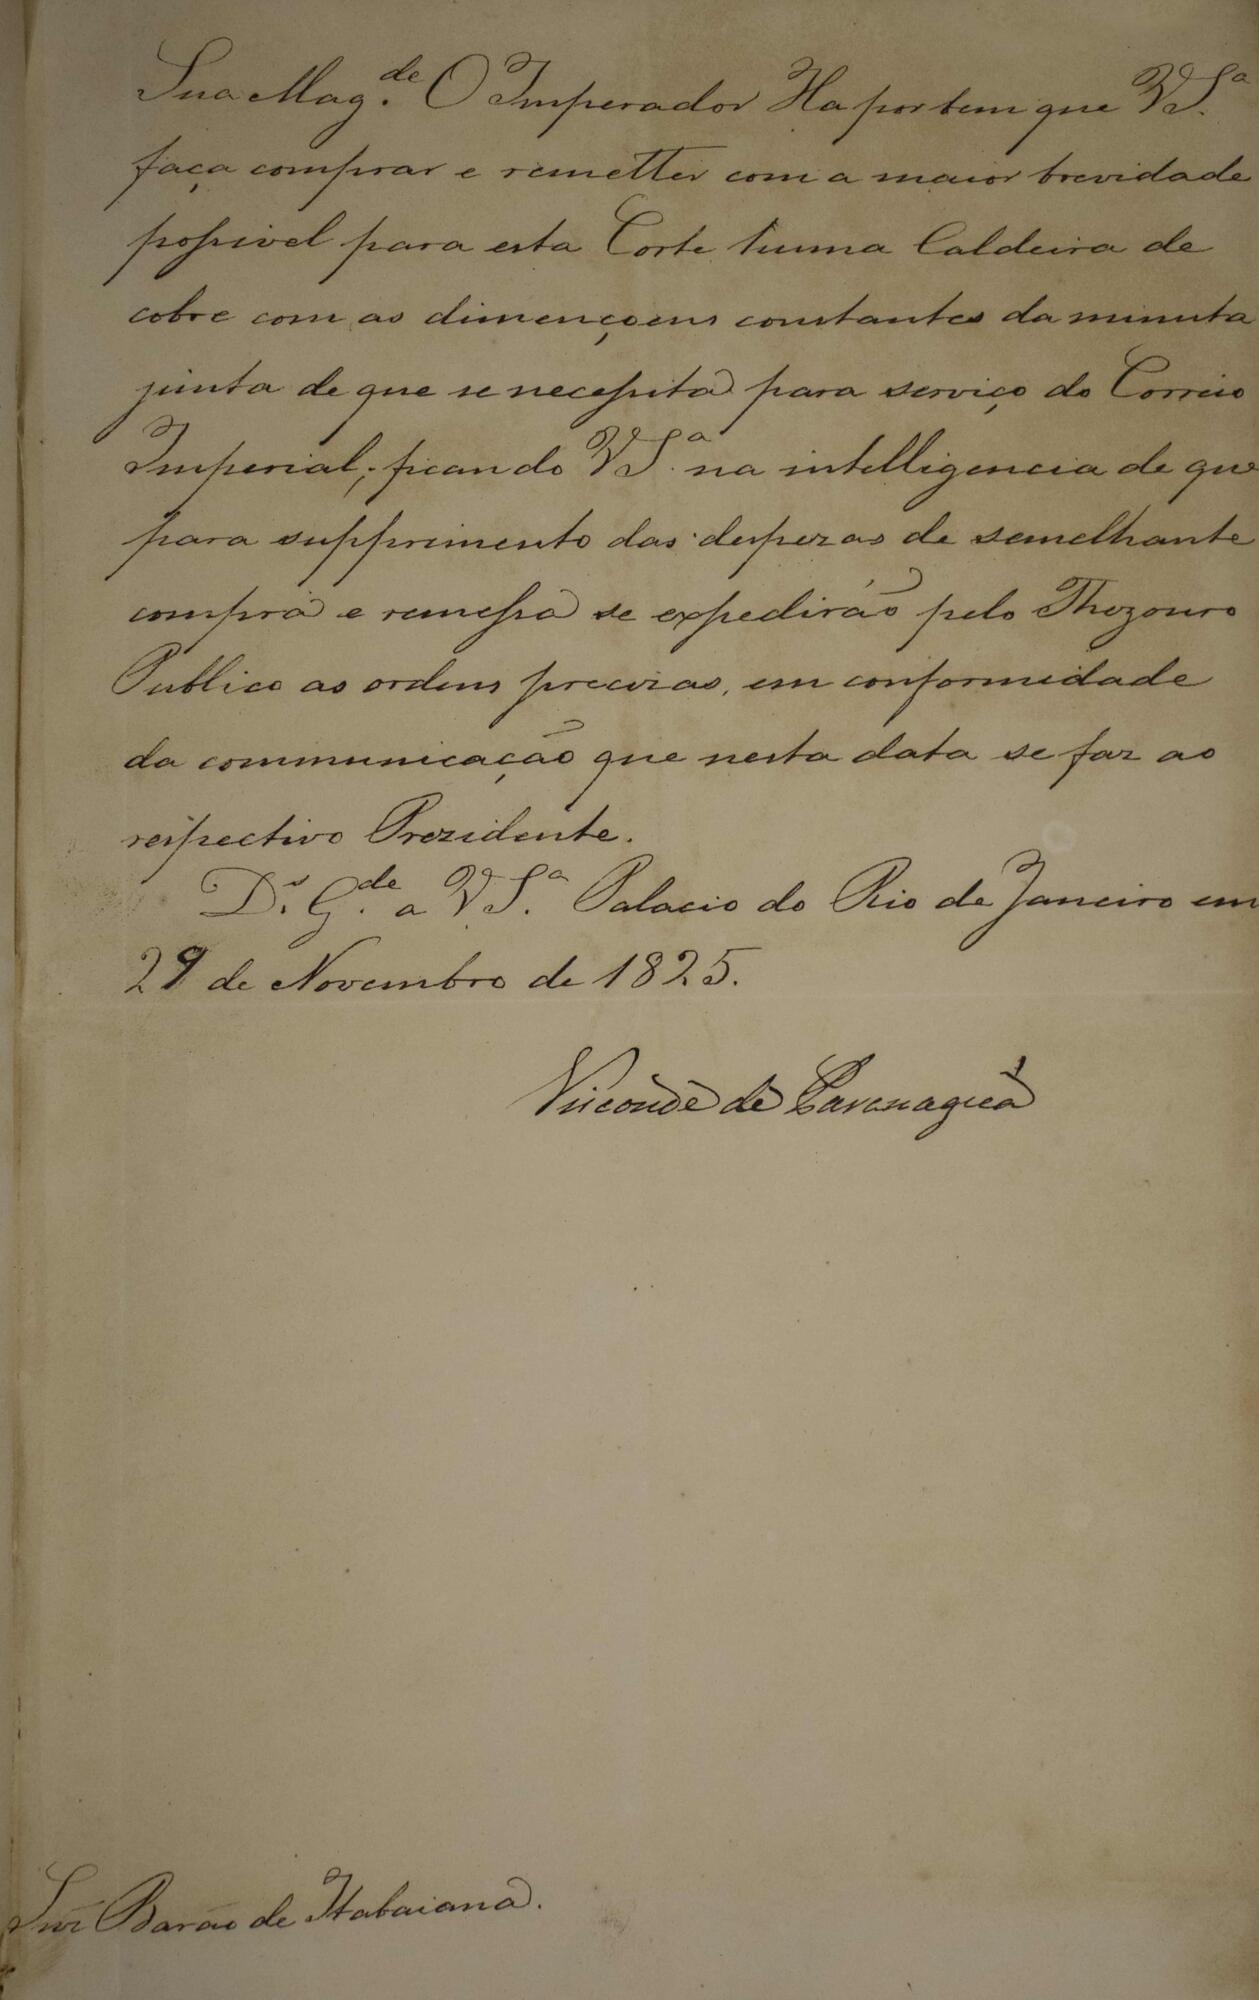 Sua Mag.de O Imperador Ha por bem que V S.a
faça comprar e remetter com a maior brevidade
possivel para esta Corte huma Caldeira de
cobre com as dimençoens constantes da minuta
junta de que se necessita para serviço do Correio
Imperial; ficando V S.a na intelligencia de que
para supprimento das despezas de semelhante
compra e remessa se expedirão pelo Thezouro
Publico as ordens precizas, em conformidade
da communicação que nesta data se faz ao
respectivo Prezidente.
D.s G.de a V S.a Palacio do Rio de Janeiro em
29 de Novembro de 1825.
Visconde de Paranaguá
Snr Barão de Itabaiana.